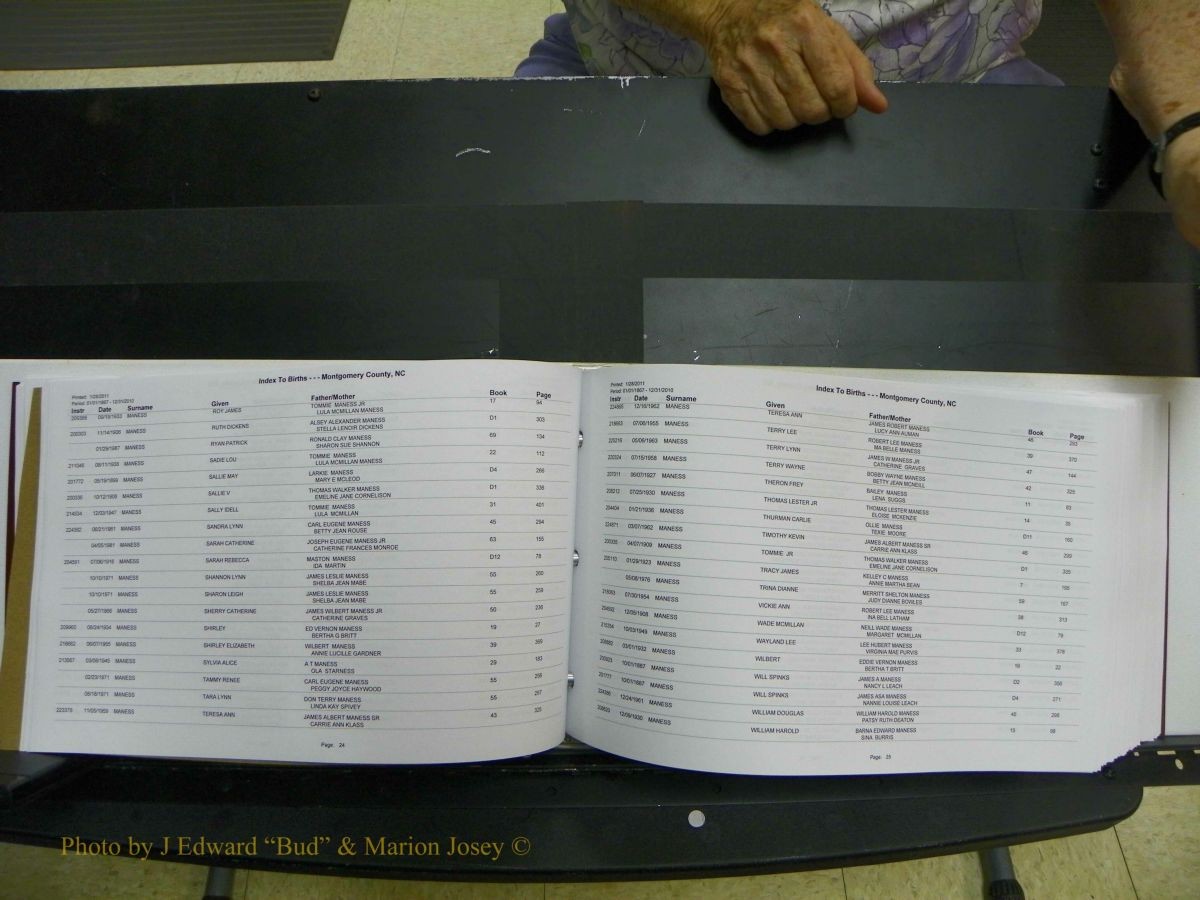 Index To Births - - - Montgomery County, NC
Printed: 1/28/2011
Period: 01/01/1867 - 12/31/2010
Instr Date Surname Given Father/Mother Book Page
MANESS ROY JAMES TOMMIE MANESS JR 17 94
LULA MCMILLAN MANESS
MANESS RUTH DICKENS ALSEY ALEXANDER MANESS D1 303
STELLA LENOIR DICKENS
01/29/1987 MANESS RYAN PATRICK RONALD CLAY MANESS 69 134
SHARON SUE SHANNON
MANESS SADIE LOU TOMMIE MANESS 22 112
LULA MCMILLAN MANESS
201772 MANESS SALLIE MAY LARKIE MANESS D4 266
MARY E MCLEOD
200336 10/12/1909 MANESS SALLIE V THOMAS WALKER MANESS D1 336
EMELINE JANE CORNELISON
214034 12/03/1947 MANESS SALLY IDELL TOMMIE MANESS 31 401
LULA MCMILLAN
224582 06/21/1961 MANESS SANDRA LYNN CARL EUGENE MANESS 45 294
BETTY JEAN ROUSE
04/05/1981 MANESS SARAH CATHERINE JOSEPH EUGENE MANESS JR 63 155
CATHERINE FRANCES MONROE
204591 07/06/1916 MANESS SARAH REBECCA MASTON MANESS D12 78
IDA MARTIN
10/10/1971 MANESS SHANNON LYNN JAMES LESLIE MANESS 55 260
SHELBA JEAN MABE
10/10/1971 MANESS SHARON LEIGH JAMES LESLIE MANESS 55 259
SHELBA JEAN MABE
05/27/1966 MANESS SHERRY CATHERINE JAMES WILBERT MANESS JR 50 236
CATHERINE GRAVES
209960 06/24/1934 MANESS SHIRLEY ED VERNON MANESS 19 27
BERTHA G BRITT
218662 06/07/1955 MANESS SHIRLEY ELIZABETH WILBERT MANESS 39 369
ANNIE LUCILLE GARDNER
213567 03/06/1945 MANESS SYLVIA ALICE A T MANESS 29 183
OLA STARNESS
02/23/1971 MANESS TAMMY RENEE CARL EUGENE MANESS 55 256
PEGGY JOYCE HAYWOOD
08/16/1971 MANESS TARA LYNN DON TERRY MANESS 55 257
LINDA KAY SPIVEY
223378 11/05/1959 MANESS TERESA ANN JAMES ALBERT MANESS SR 43 325
CARRIE ANN KLASS
Page: 24
Index To Births - - - Montgomery County, NC
Printed: 1/28/2011
Period: 01/01/1867 - 12/31/2010
Instr Date Surname Given Father/Mother Book Page
224895 12/16/1962 MANESS TERESA ANN JAMES ROBERT MANESS 46 293
LUCY ANN AUMAN
218663 07/08/1955 MANESS TERRY LEE ROBERT LEE MANESS 39 370
MA BELLE MANESS
225216 05/06/1963 MANESS TERRY LYNN JAMES W MANESS JR 47 144
CATHERINE GRAVES
220324 07/15/1958 MANESS TERRY WAYNE BOBBY WAYNE MANESS 42 325
BETTY JEAN MCNEILL
207311 06/07/1927 MANESS THERON FREY BAILEY MANESS 11 63
LENA SUGGS
208212 07/25/1930 MANESS THOMAS LESTER JR THOMAS LESTER MANESS 14 35
ELOISE MCKENZIE
204404 01/21/1936 MANESS THURMAN CARLIE OLLIE MANESS D11 160
TEXIE MOORE
224871 03/07/1962 MANESS TIMOTHY KEVIN JAMES ALBERT MANESS SR 46 299
CARRIE ANN KLASS
200335 04/07/1909 MANESS TOMMIE JR THOMAS WALKER MANESS D1 335
EMELINE JANE CORNELISON
01/29/1923 MANESS TRACY JAMES KELLEY C MANESS 7
ANNIE MARTHA SEAN
05/08/1976 MANESS TRINA DIANNE MERRITT SHELTON MANESS 59 167
JUDY DIANNE BOWLES
07/30/1954 MANESS VICKIE ANN ROBERT LEE MANESS 38 313
INA BELL LATHAM
204592 12/05/1908 MANESS WADE MCMILLAN NEILL WADE MANESS D12 79
MARGARET MCMILLAN
10/03/1949 MANESS WAYLAND LEE LEE HUBERT MANESS 33 378
VIRGINIA MAE PURVIS
03/01/1932 MANESS WILBERT EDDIE VERNON MANESS 22
BERTHA T BRITT
10/01/1887 MANESS WILL SPINKS JAMES A MANESS D2
NANCY L LEACH
201777 10/01/1887 MANESS WILL SPINKS JAMES ASA MANESS D4 271
NANNIE LOUISE LEACH
12/24/1961 MANESS WILLIAM DOUGLAS WILLIAM HAROLD MANESS 45 298
PATSY RUTH DEATON
12/09/1930 MANESS WILLIAM HAROLD BARNA EDWARD MANESS 15 98
SINA BURRIS
Page: 25
Photo by J Edward “Bud” & Marion Josey ©